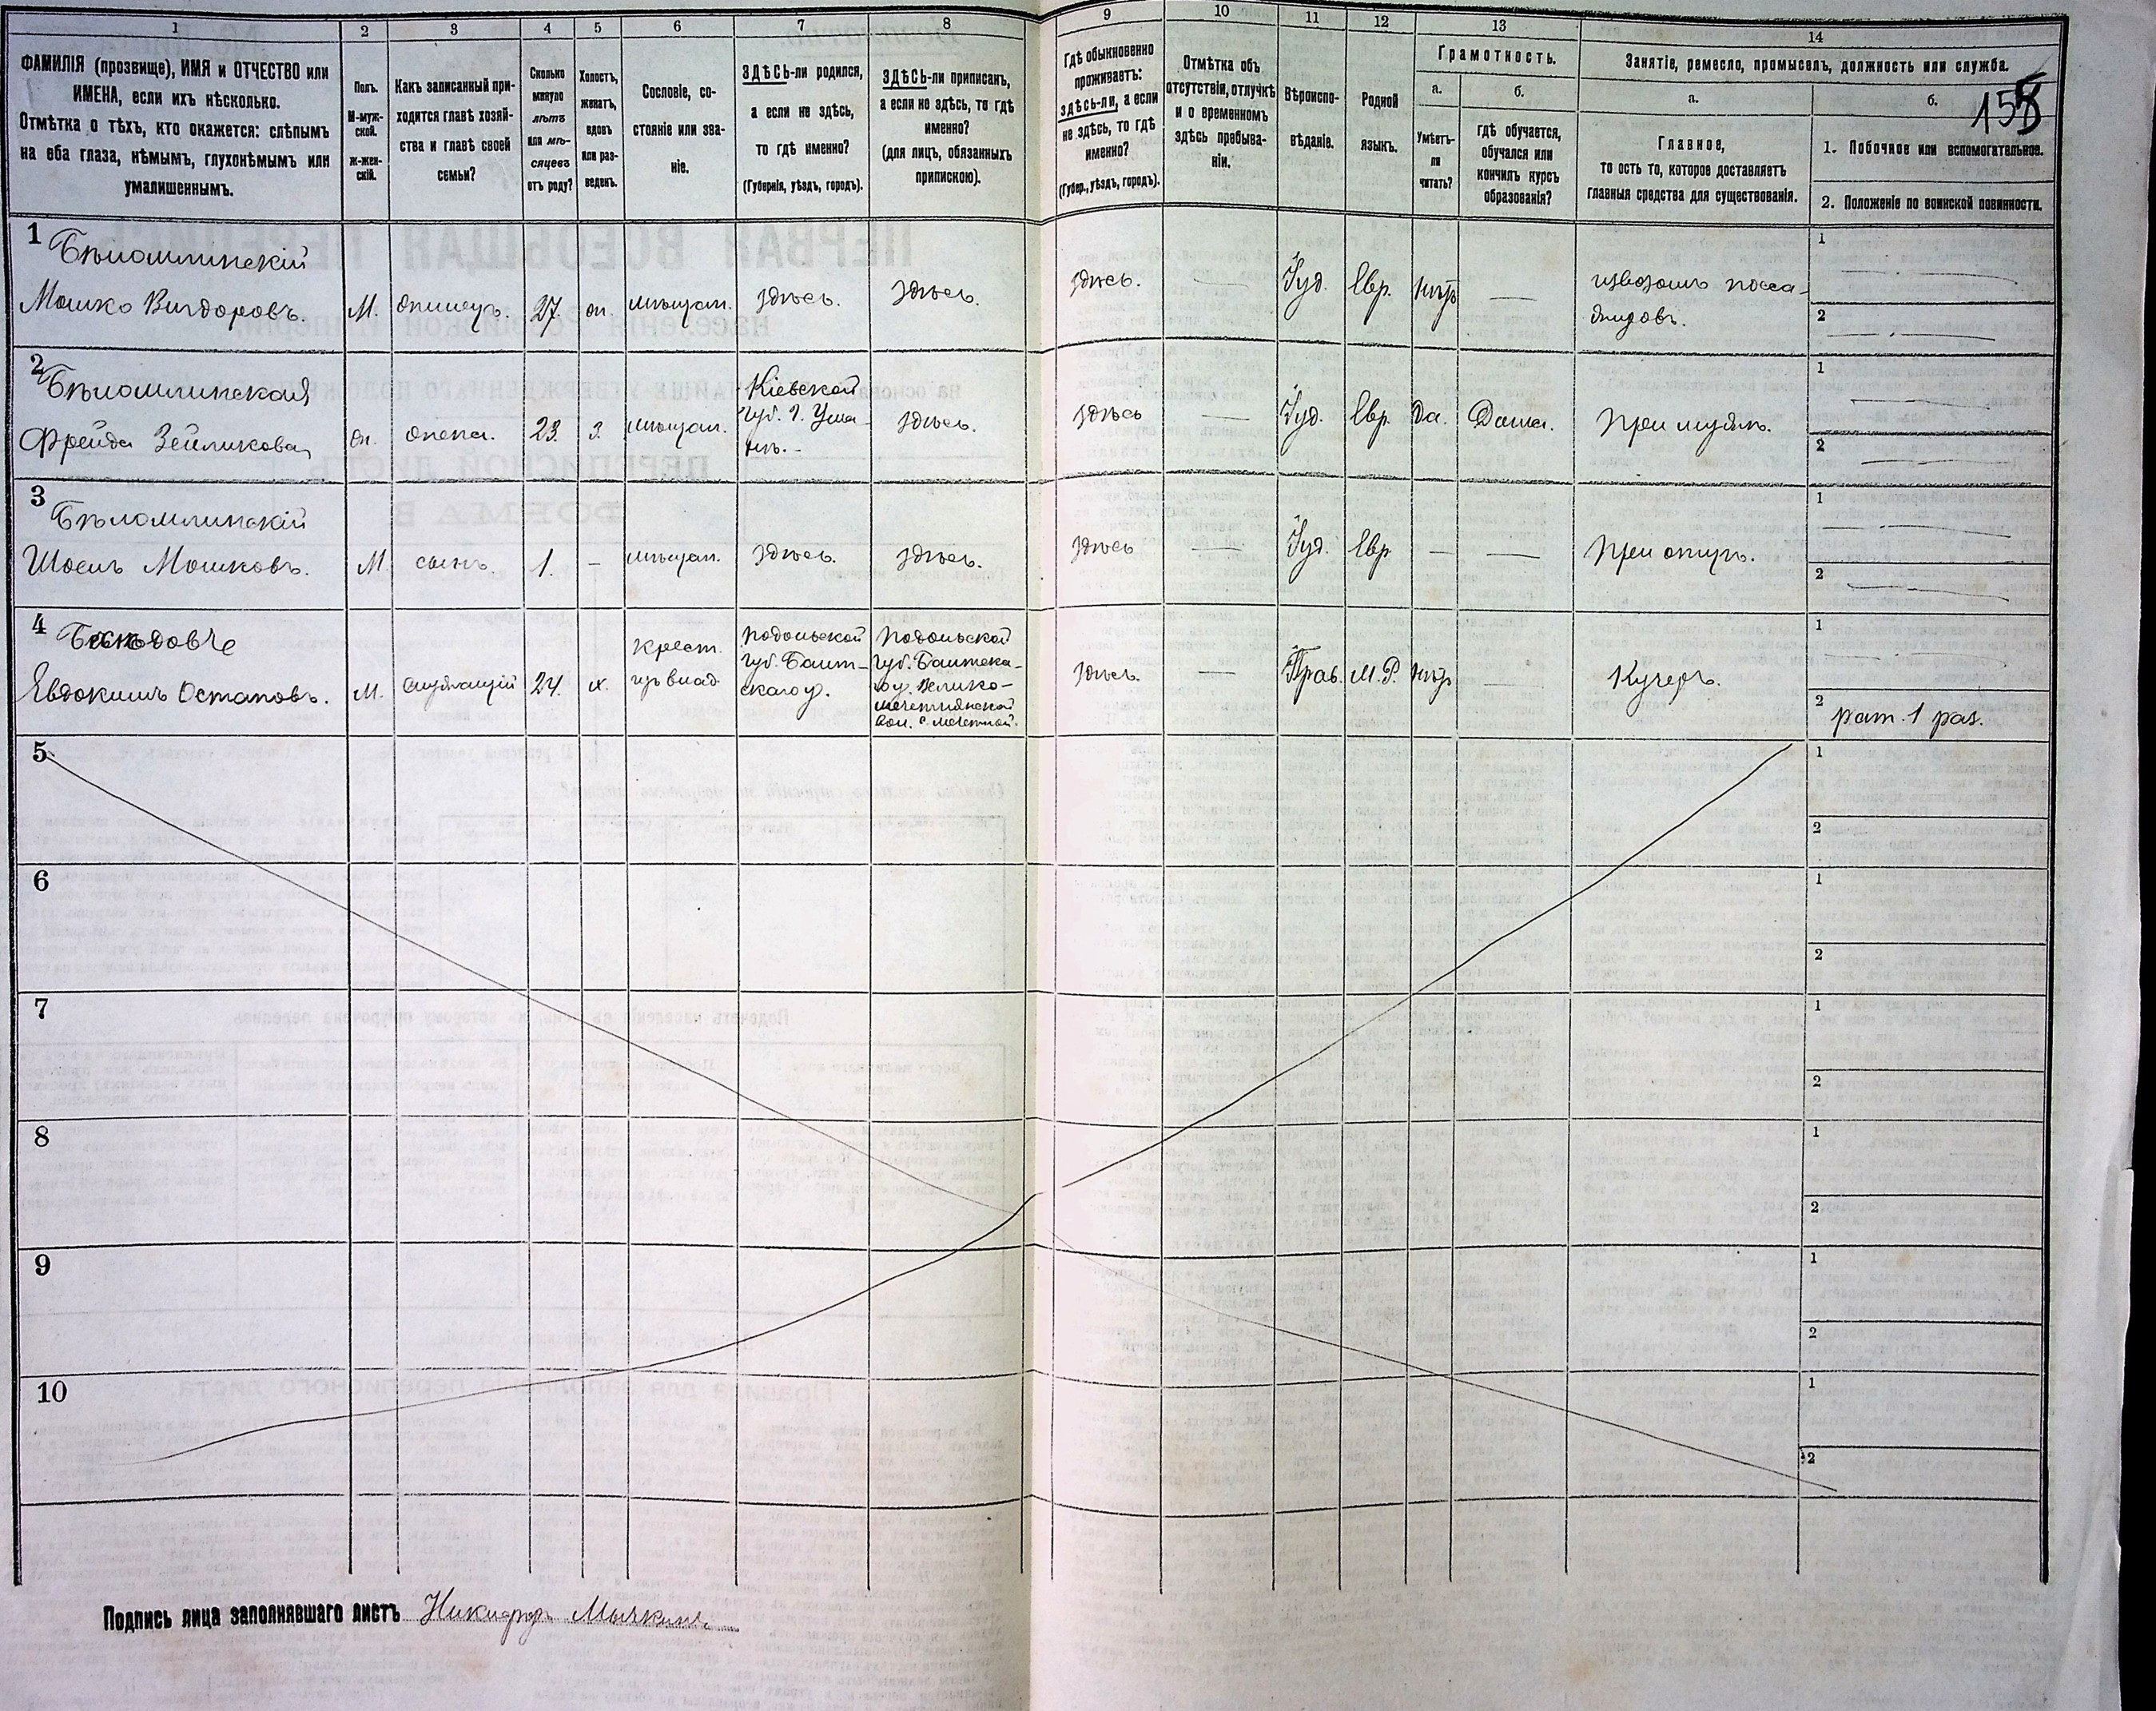 1
2
3
4
5
6
7
8
9
10
11
12
13
14
ФАМИЛІЯ (прозвище), ИМЯ и ОТЧЕСТВО или
ИМЕНА, если ихъ нѣсколько.
Отмѣтка о тѣхъ, кто окажется: слѣпымъ
на оба глаза, нѣмымъ, глухонѣмымъ или
умалишеннымъ.
Полъ.
М-муж-
ской.
Ж-жен-
скій.
Какъ записанный при-
ходится главѣ хозяй-
ства и главѣ своей
семьи?
Сколько
минуло
лѣтъ
или мѣ-
сяцевъ
отъ роду?
Холостъ,
женатъ,
вдовъ
или раз-
веденъ.
Сословіе, со-
стояніе или зва-
ніе.
ЗДѢСЬ-ли родился,
а если не здѣсь,
то гдѣ именно?
(Губернія, уѣздъ, городъ).
ЗДѢСЬ-ли приписанъ,
а если не здѣсь, то гдѣ
именно?
(для лицъ, обязанныхъ
припискою).
Гдѣ обыкновенно
проживаетъ:
здѣсь-ли, а если
не здѣсь, то гдѣ
именно?
(Губер., уѣздъ, городъ).
Отмѣтка объ
отсутствіи, отлучкѣ
и о временномъ
здѣсь пребыва-
ніи.
Вѣроиспо-
вѣданіе.
Родной
языкъ.
Грамотность.
а.
Умѣетъ-
ли
читать?
б.
гдѣ обучается,
обучался или
кончилъ курсъ
образованія?
Занятіе, ремесло, промыселъ, должность или служба.
а.
Главное,
то есть то, которое доставляетъ
главныя средства для существованія.
б.
1. Побочное или вспомогательное.
2. Положеніе по воинской повинности.
1
Бѣломлинскій
Мошко Вигдоровъ.
М.
27.
мѣщан.
здѣсь.
здѣсь.
здѣсь.
Іуд.
Евр.
нѣтъ
извозомъ пасса-
жировъ.
1
2
2
Бѣломлинская
Фрейда Зейликова
жена.
23.
з.
мѣщан.
Кіевской
губ. г. Ума-
нь.
здѣсь.
здѣсь
Іуд.
Евр.
Да.
Дома.
при мужѣ.
1
2
3
Бѣломлинскій
Мошковъ.
М
сынъ.
1.
–
мѣщан.
здѣсь.
здѣсь.
здѣсь
Іуд.
Евр.
—
—
при отцѣ.
1
2
4
Евдокимъ Остаповъ.
М.
служащій
24.
х.
крест.
изъ влад.
Подольской
губ. Балт-
скаго у.
Подольской
губ. Балтска-
го у. Велико-
мечетнянской
вол. с. Мечетной.
здѣсь.
Прав.
М. Р.
нѣтъ
Кучеръ.
1
2
рат. 1 раз.
5
1
2
6
1
2
7
1
2
8
1
2
9
1
2
10
1
2
Подпись лица заполнявшаго листъ Никифоръ